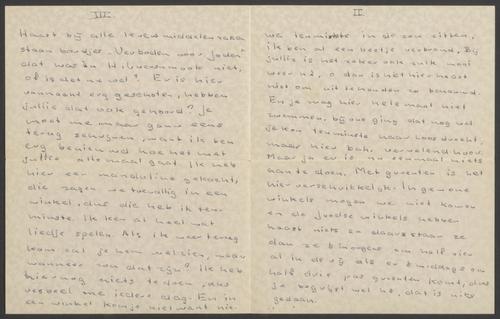 III.
Haast bij alle levensmiddelenzaken
staan bordjes „Verboden voor Joden"
dat was in Hilversum ook niet,
of is dat nu wel? Er is hier
vannacht erg geschoten, hebben
jullie dat ook gehoord? Je
moet me maar gauw eens
terug schrijven, want ik ben
erg benieuwd hoe het met
jullie allemaal gaat. Ik heb
hier een mandoline gekocht,
die zagen we toevallig in een
winkel, dus die heb ik ten-
minste. Ik leer al heel wat
liedje spelen. Als ik weer terug
kom zal je hem wel zien, maar
wanneer zou dat zijn? Ik heb
hier nog niets te doen, dus
verveel me iedere dag. En in
een winkel kom je niet want nie-
II.
we tenminste in de zon zitten,
ik ben al een beetje verbrand. Bij
jullie is het zeker ook zulk mooi
weer hè, o dan is het hier haast
niet om uit te houden zo benauwd.
En je mag hier helemaal niet
zwemmen, bij ons ging dat nog wel
je kon tenminste naar Loosdrecht,
maar hier bah, vervelend hoor.
Maar ja er is nu eenmaal niets
aan te doen. Met groenten is het
hier verschrikkelijk. In gewone
winkels mogen we niet komen
en de Joodse winkels hebben
haast niets en daar staan ze
dan 's morgens om half vier
al in de rij als er 's middags om
half drie pas groenten komt, dus
je begrijpt wel hè, dat is niets
gedaan.